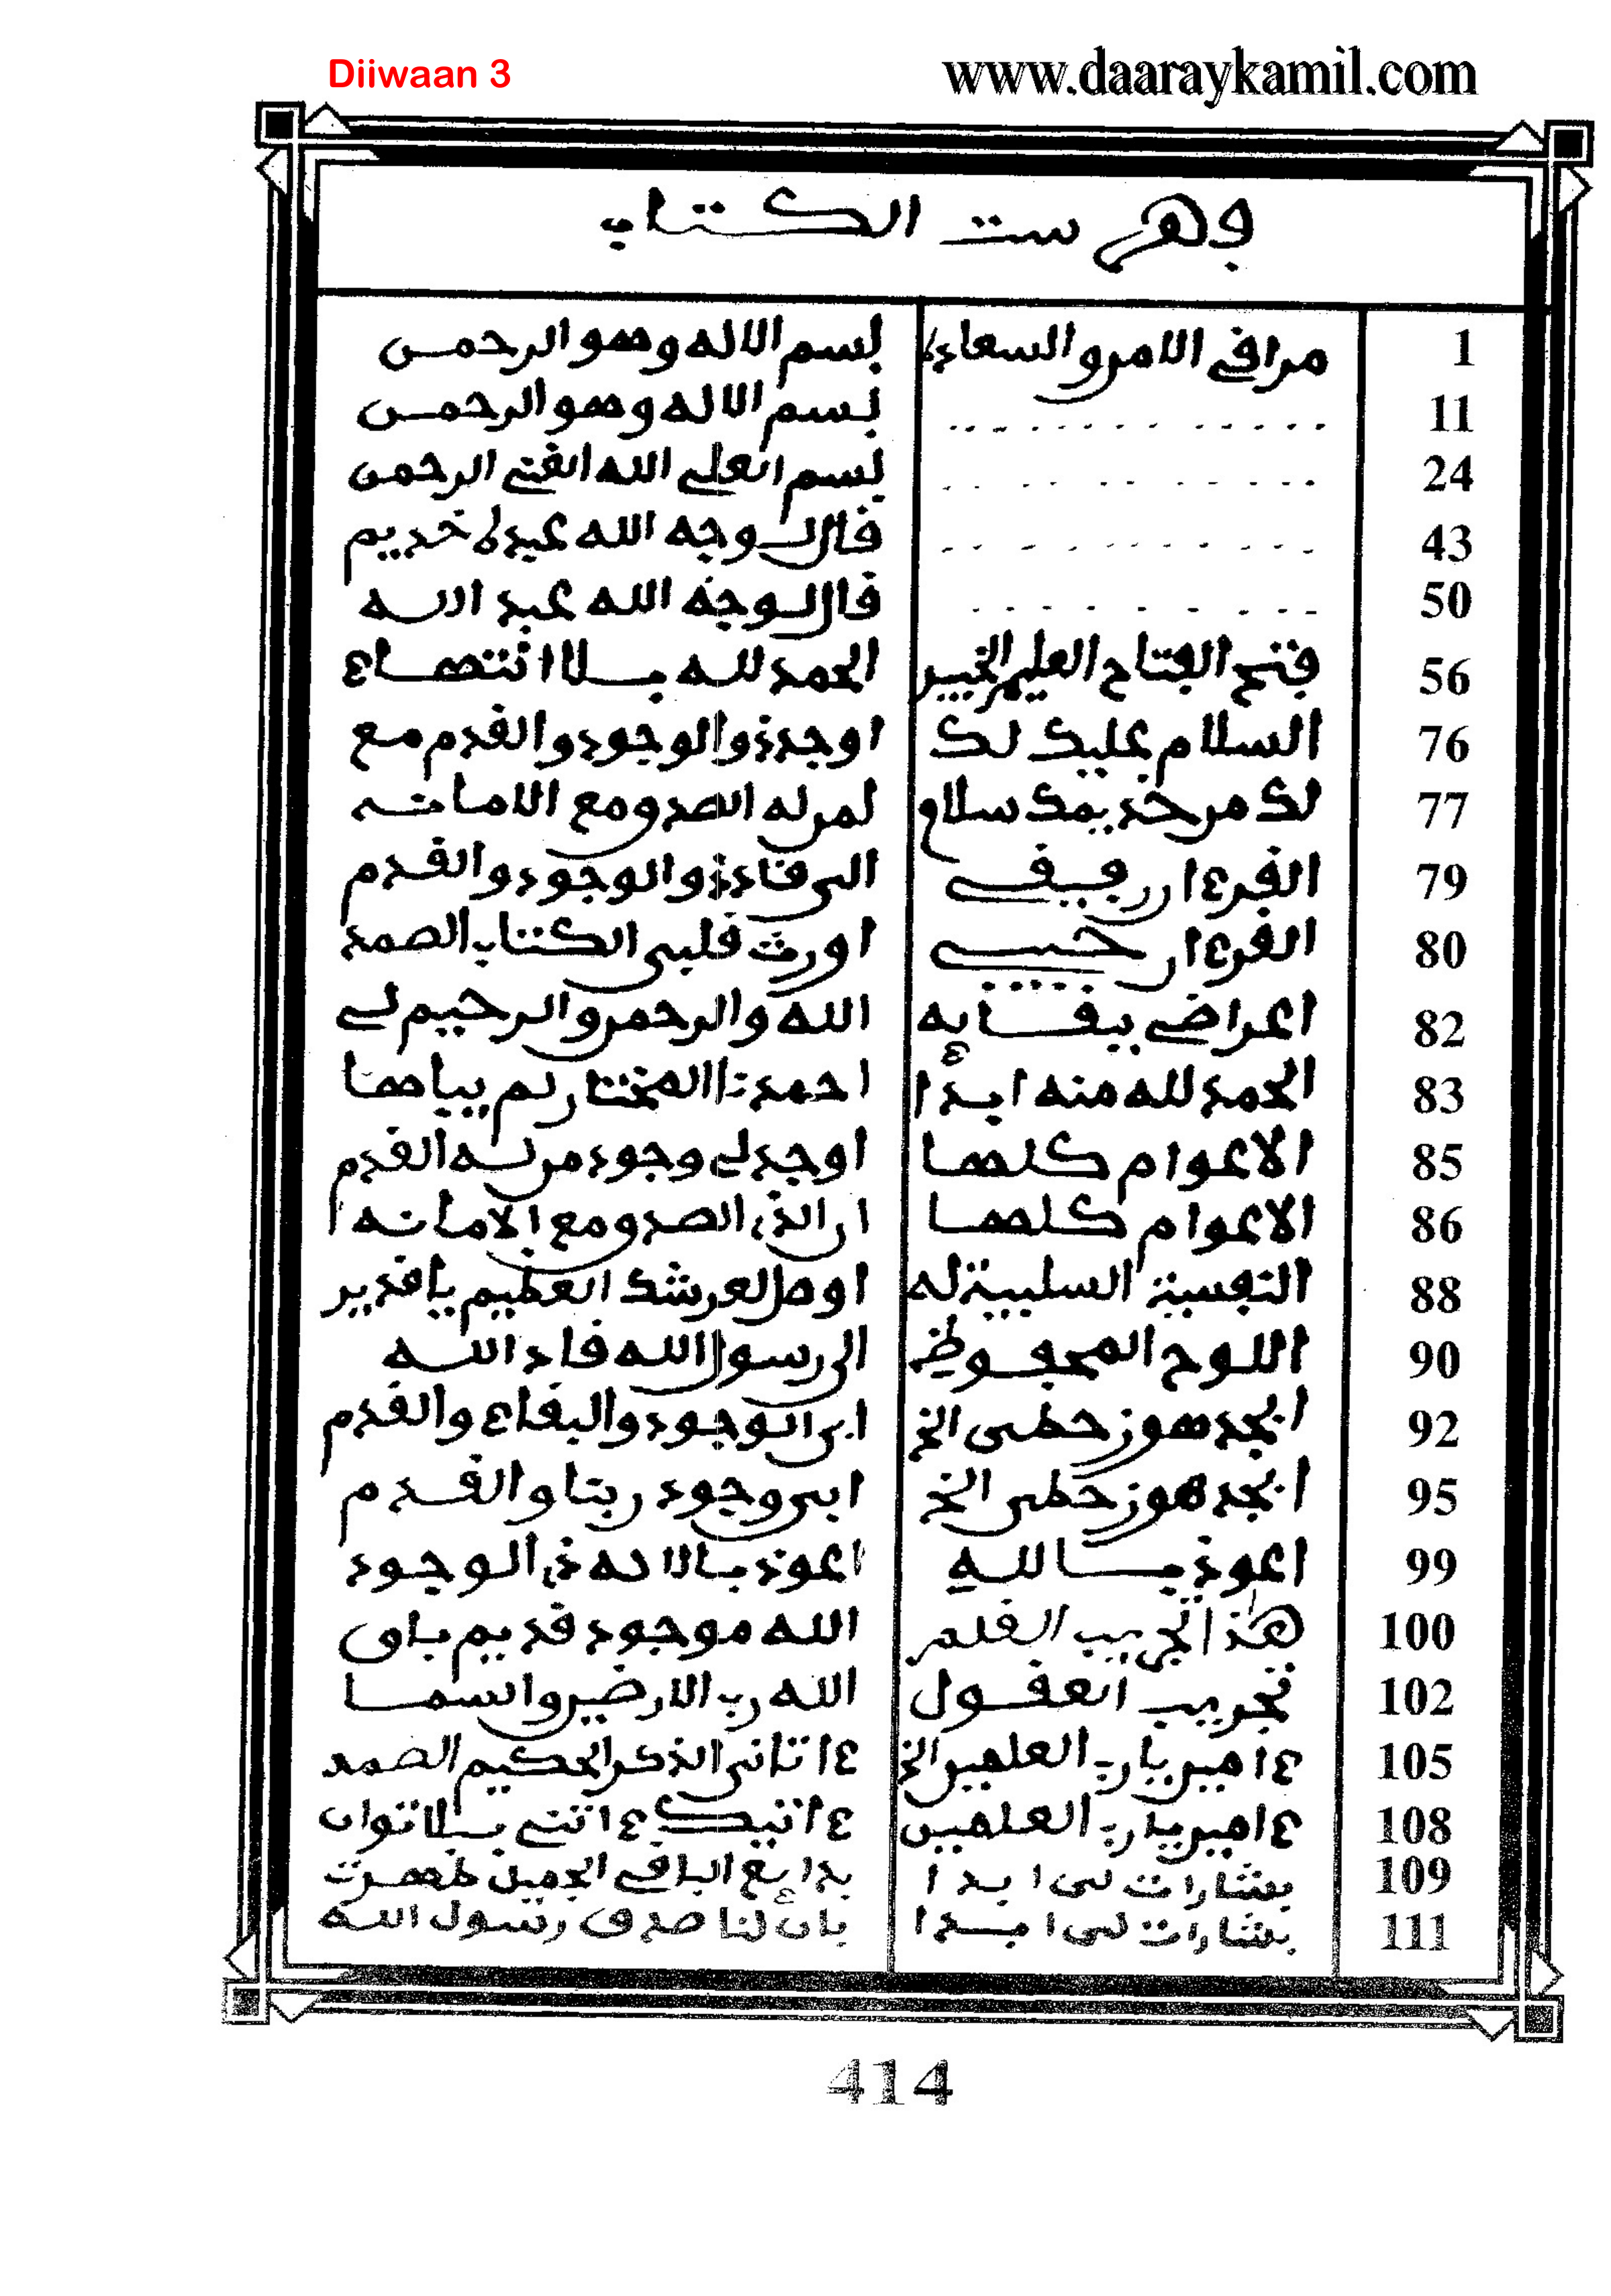 Diiwaan 3
www.daaraykamil.com
فهرست الكتاب
1 مرافى الامن والسعادة بسم الاله وهو الرحمن
11 بسم الاله وهو الرحمن
24 بسم العلى الله الغنى الرحمن
43 قال لوجه الله عبده خديم
50 قال لوجه الله عبد الله
56 فتح الفتاح العليم الخبير الحمد لله بلا انتهاء
76 السلام عليك لك اوجد ذو الوجود والقدم مع
77 لك من خديمك سلام لمن له الصدق مع الامانه
79 القرءان رفيقى الى قاد ذو الوجود والقدم
80 القرءان حبيبى اورث قلبى الكتاب الصمد
82 اعراضى ببقائه الله والرحمن والرحيم لى
83 الحمد لله منه ابدا احمدنا المختار لم يباها
85 الاعوام كلها اوجد لى وجود من له القدم
86 الاعوام كلها ان الذى الصدق مع الامانه
88 النفسية السلبية له العظيم يا قدير
90 اللوح المحفوظ الى رسول الله قاد الله
92 ابجد هوز حطى الخ ابى الوجود والبقاء والقدم
95 ابجد هوز حطى الخ ابى وجود ربنا والقدم
99 اعوذ بالله اعوذ بالاله ذى الوجود
100 هذا تجريب القلم الله موجود قديم باق
102 تجريب العقول الله رب الارضين والسما
105 ءامين يا رب العلمين الخ ءاتانى الذكر الحكيم الصمد
108 ءامين يا رب العلمين ءاتيك ءاتنى بلا توان
109 بشارات لى ابدا بدائع الباقى الجميل ظهرت
111 بشارات لى ابدا بان لنا صدق رسول الله
414